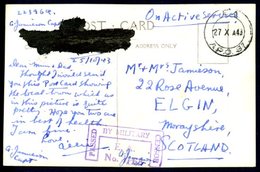 On Active Service
POST CARD
G. Jamieson Capt
25/10/43
27 X 43
APO
ADDRESS ONLY
Dear Mum & Dad
Thought I would send
you this Postcard showing
the boat town which as
this picture is quite
pretty. Hope you two are
in best of health.
I am fine.
Love
G. Jamieson
Capt
Mr & Mrs Jamieson,
22 Rose Avenue,
ELGIN,
Morayshire,
SCOTLAND.
PASSED
BY MILITARY
No.